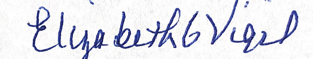 Elizabeth G Vigil